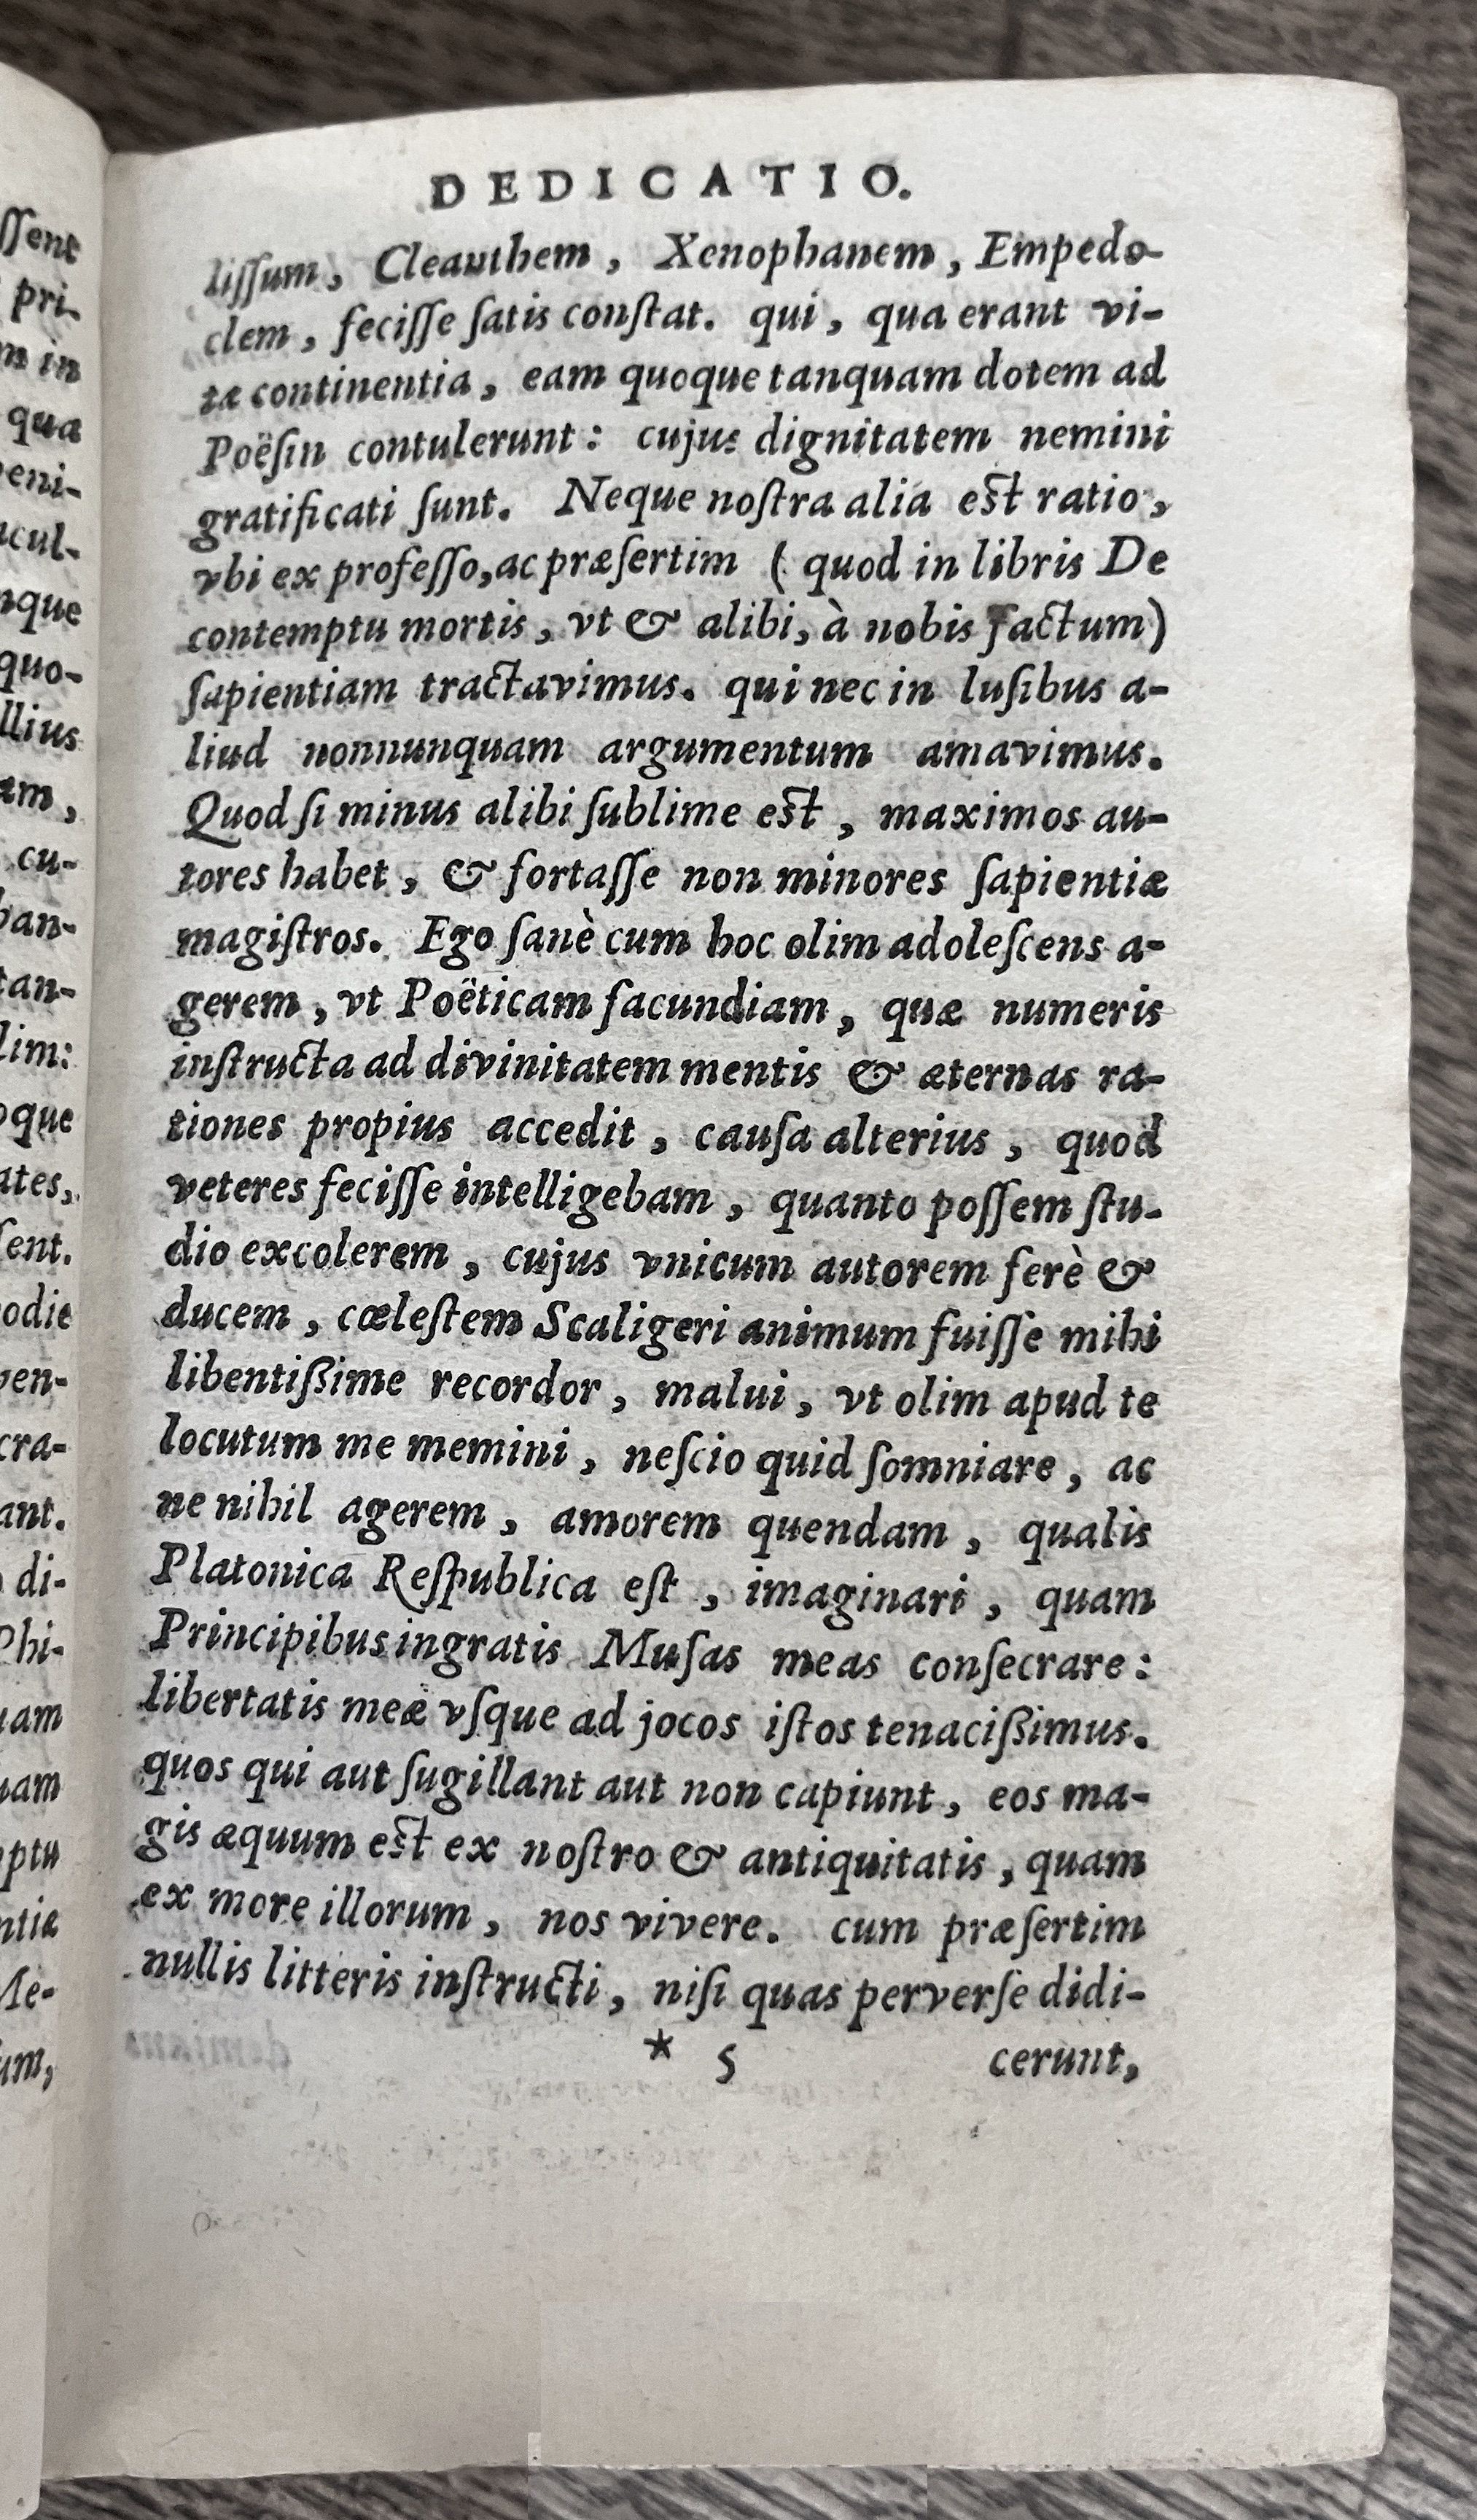 DEDICATIO.
liſſum, Cleanthem, Xenophanem, Empedo-
clem, feciſſe ſatis conſtat. qui, qua erant vi-
tæ continentia, eam quoque tanquam dotem ad
Poëſin contulerunt: cujus dignitatem nemini
gratificati ſunt. Neque noſtra alia eſt ratio,
vbi ex profeſſo, ac præſertim (quod in libris De
contemptu mortis, vt & alibi, à nobis factum)
ſapientiam tractavimus. qui nec in luſibus a-
liud nonnunquam argumentum amavimus.
Quod ſi minus alibi ſublime eſt, maximos au-
tores habet, & fortaſſe non minores ſapientiæ
magiſtros. Ego ſanè cum hoc olim adoleſcens a-
gerem, vt Poëticam facundiam, quæ numeris
inſtructa ad divinitatem mentis & æternas ra-
tiones propius accedit, cauſa alterius, quod
veteres feciſſe intelligebam, quanto poſſem ſtu-
dio excolerem, cujus vnicum autorem ferè &
ducem, cœleſtem Scaligeri animum fuiſſe mihi
libentißime recordor, malui, vt olim apud te
locutum me memini, neſcio quid ſomniare, ac
ne nihil agerem, amorem quendam, qualis
Platonica Reſpublica eſt, imaginari, quam
Principibus ingratis Muſas meas conſecrare:
libertatis meæ vſque ad jocos iſtos tenacißimus.
quos qui aut ſugillant aut non capiunt, eos ma-
gis æquum eſt ex noſtro & antiquitatis, quam
ex more illorum, nos vivere. cum præſertim
nullis litteris inſtructi, niſi quas perverſe didi-
* 5 cerunt,